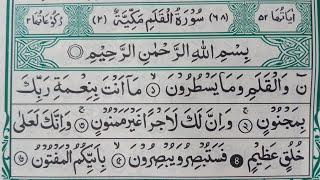 اٰیَاتُهَا ۵۲ (۶۸) سُوْرَةُ الْقَلَمِ مَكِّیَّةٌ (۲) رُكُوْعَاتُهَا ۲
بِسْمِ اللّٰهِ الرَّحْمٰنِ الرَّحِیْمِ
نٓ وَالْقَلَمِ وَمَا یَسْطُرُوْنَ ۙ۱ مَاۤ اَنْتَ بِنِعْمَةِ رَبِّكَ
بِمَجْنُوْنٍ ۚ۲ وَاِنَّ لَكَ لَاَجْرًا غَیْرَ مَمْنُوْنٍ ۚ۳ وَاِنَّكَ لَعَلٰی
خُلُقٍ عَظِیْمٍ ۴ فَسَتُبْصِرُ وَیُبْصِرُوْنَ ۙ۵ بِاَیِّكُمُ الْمَفْتُوْنُ ۶